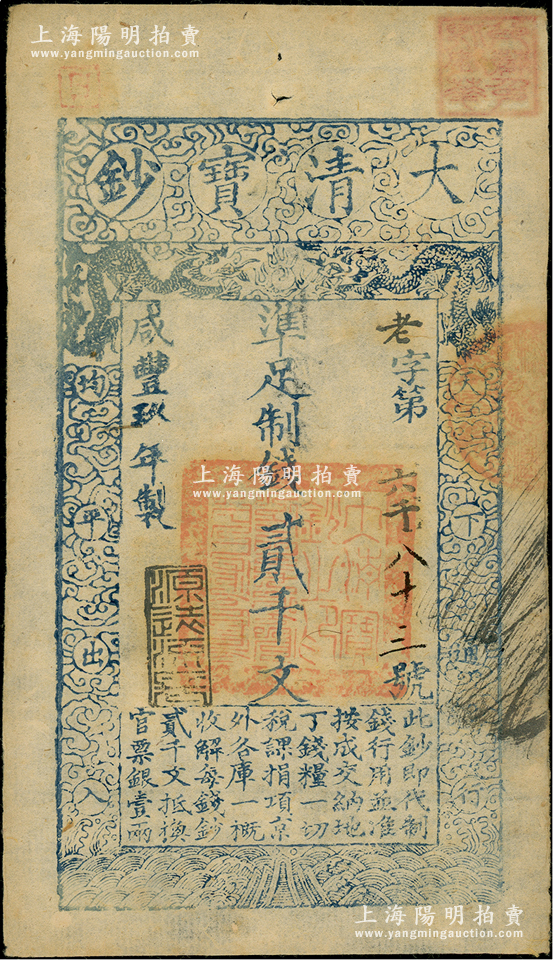 上海陽明拍賣
www.yangmingauction.com
大清寶鈔
天下通行
均平出入
老字第六千八十三號
準足制錢貳千文
咸豐玖年製
上海陽明拍賣
www.yangmingauction.com
源遠流長
此鈔即代制
錢行用並准
按成交納地
丁錢糧一切
稅課捐項京
外各庫一概
收解每錢鈔
貳千文抵換
官票銀壹兩
上海陽明拍賣
www.yangmingauction.com